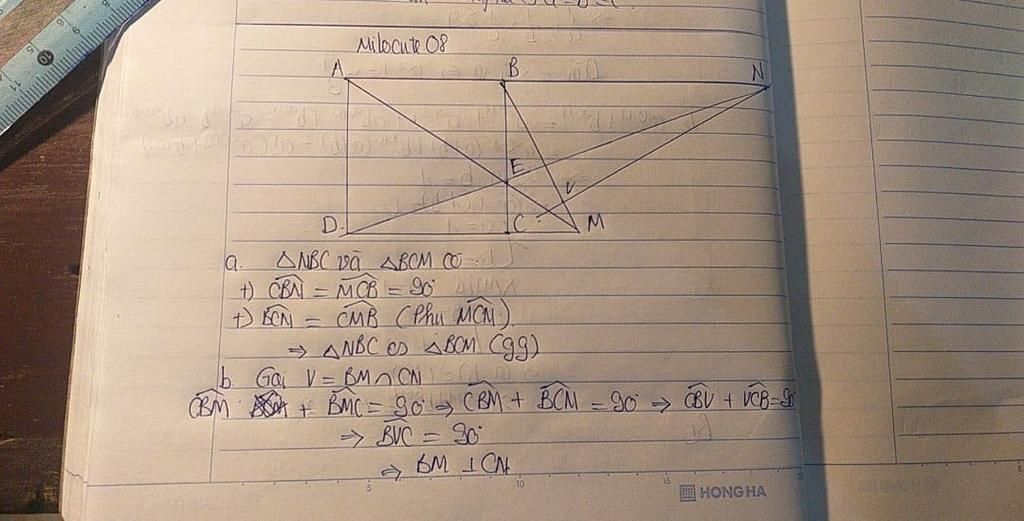 Milocute 08
A B N
E
V
D C M
a. △NBC và △BCM có
+) CBN = MCB = 90°
+) BCN = CMB (Phụ MCN)
⇒ △NBC ∽ △BCM (gg)
b. Gọi V = BM ∩ CN
CBM + BMC = 90° ⇒ CBM + BCM = 90° ⇒ CBV + VCB = 90°
⇒ BVC = 90°
⇒ BM ⊥ CN
5 10 15 20
HONG HA